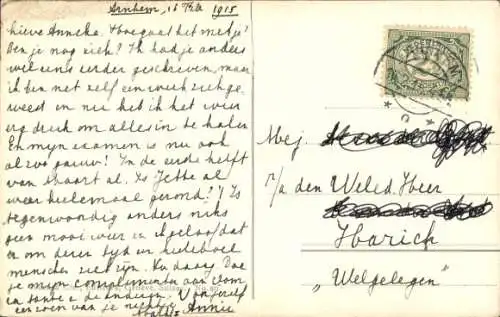 Arnhem, 16 Feb 1915
Lieve Annske. Hoe gaat het met je?
Ben je nog ziek? Ik had je anders
wel eens eerder geschreven, maar
ik ben net zelf een week ziek ge-
weest en nu heb ik het weer
erg druk om alles in te halen
En mijn examen is nu ook
al zoo gauw! In de eerste helft
van Maart al. Is Jetske al
weer heelemaal gezond? 't Is
tegenwoordig anders niks
geen mooi weer en ik geloof dat
er om dezen tijd een heeleboel
menschen ziek zijn. Nu dag. Doe
je mijn complimenten aan Oom
en tante en de anderen. Van jezelf
een zoen van je nichtje
Annie
Mej.
p/a den Weled. Heer
Harich
"Welgelegen"